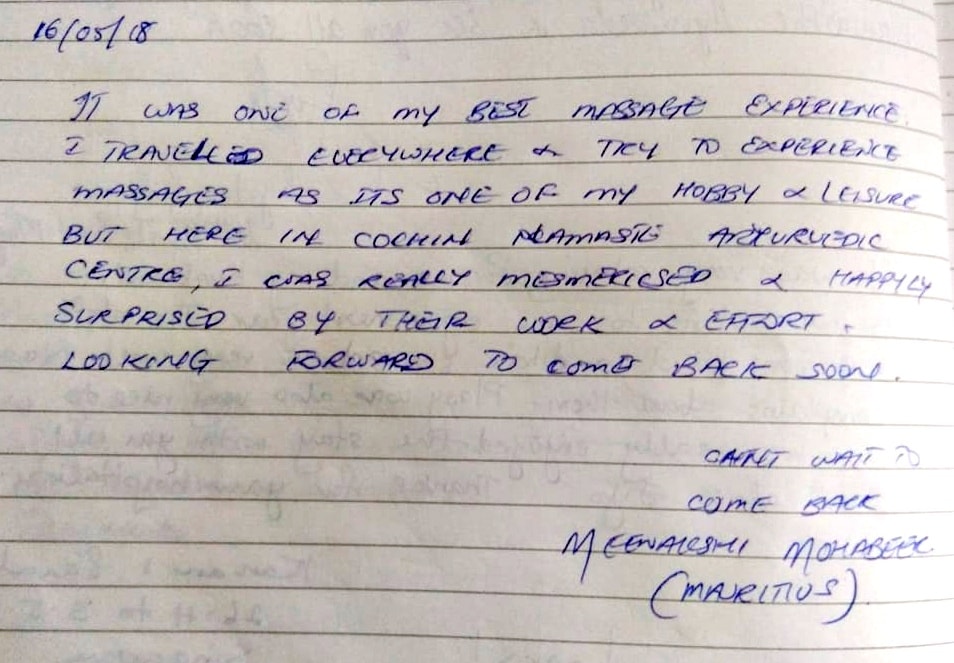 16/05/18
IT WAS ONE OF MY BEST MASSAGE EXPERIENCE.
I TRAVELLED EVERYWHERE & TRY TO EXPERIENCE
MASSAGES AS ITS ONE OF MY HOBBY & LEISURE
BUT HERE IN COCHIN NAMASTE AYURVEDIC
CENTRE, I WAS REALLY MESMERISED & HAPPILY
SURPRISED BY THEIR WORK & EFFORT.
LOOKING FORWARD TO COME BACK SOON.
CAN'T WAIT TO
COME BACK
MEENAKSHI MOHABEER
(MAURITIUS)